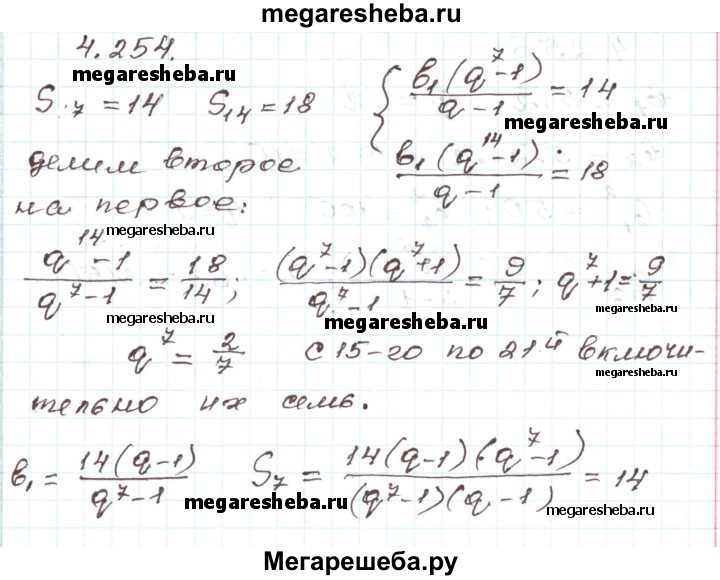 megaresheba.ru
4.254.
megaresheba.ru
S₇ = 14 S₁₄ = 18 { b₁(q⁷-1)/(q-1) = 14
megaresheba.ru
делим второе b₁(q¹⁴-1)/(q-1) = 18
на первое:
megaresheba.ru
(q¹⁴-1)/(q⁷-1) = 18/14; (q⁷-1)(q⁷+1)/(q⁷-1) = 9/7; q⁷+1 = 9/7
megaresheba.ru
megaresheba.ru
megaresheba.ru
q⁷ = 2/7 с 15-го по 21й включи-
тельно их семь.
b₁ = 14(q-1)/(q⁷-1) S₇ = 14(q-1)(q⁷-1)/((q⁷-1)(q-1)) = 14
megaresheba.ru
megaresheba.ru
Мегарешеба.ру